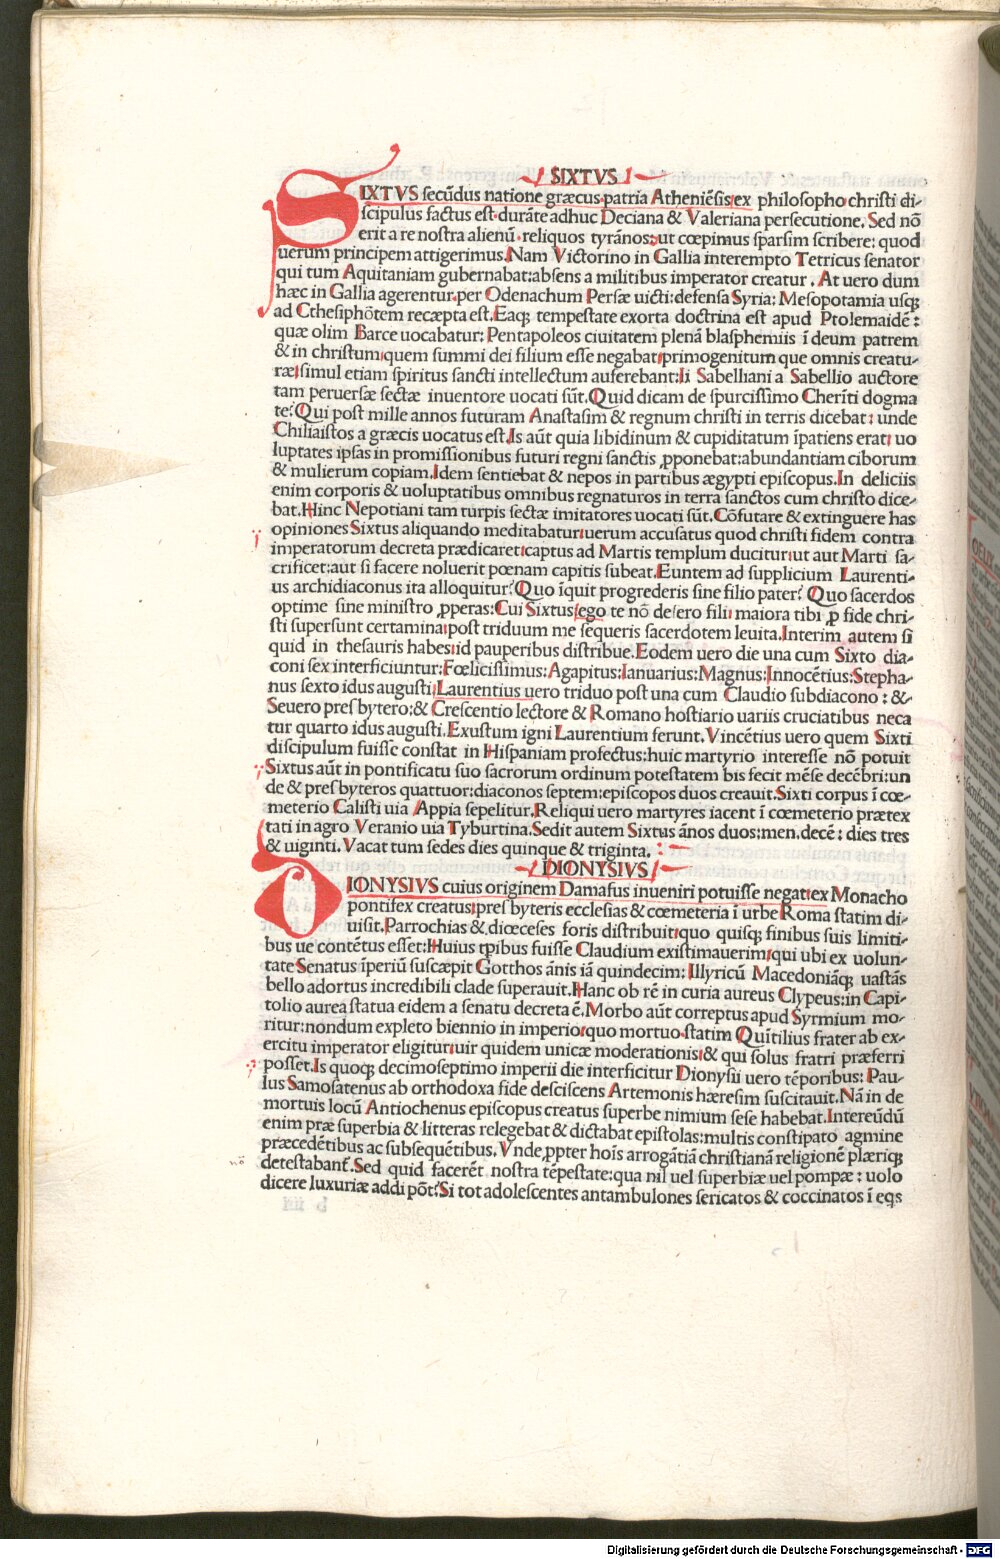 SIXTVS
SIXTVS secūdus natione græcus patria Atheniēsis ex philosopho christi di-
scipulus factus est durāte adhuc Deciana & Valeriana persecutione. Sed nō
erit a re nostra alienū reliquos tyrānos: ut cœpimus sparsim scribere: quod
uerum principem attigerimus. Nam Victorino in Gallia interempto Tetricus senator
qui tum Aquitaniam gubernabat: absens a militibus imperator creatur. At uero dum
hæc in Gallia agerentur. per Odenachum Persæ uicti: defensa Syria: Mesopotamia usq;
ad Cthesiphōtem recæpta est. Eaq; tempestate exorta doctrina est apud Ptolemaidē:
quæ olim Barce uocabatur: Pentapoleos ciuitatem plenā blasphemiis ī deum patrem
& in christum quem summi dei filium esse negabat primogenitum que omnis creatu-
ræ simul etiam spiritus sancti intellectum auferebant: Ii Sabelliani a Sabellio auctore
tam peruersæ sectæ inuentore uocati sūt. Quid dicam de spurcissimo Cherīti dogma
te? Qui post mille annos futuram Anastasim & regnum christi in terris dicebat: unde
Chiliaistos a græcis uocatus est. Is aūt quia libidinum & cupiditatum īpatiens erat: uo
luptates ipsas in promissionibus futuri regni sanctis ꝓponebat: abundantiam ciborum
& mulierum copiam. Idem sentiebat & nepos in partibus ægypti episcopus. In deliciis
enim corporis & uoluptatibus omnibus regnaturos in terra sanctos cum christo dice-
bat. Hinc Nepotiani tam turpis sectæ imitatores uocati sūt. Cōfutare & extinguere has
opiniones Sixtus aliquando meditabatur: uerum accusatus quod christi fidem contra
imperatorum decreta prædicaret captus ad Martis templum ducitur: ut aut Marti sa-
crificet: aut si facere noluerit pœnam capitis subeat. Euntem ad supplicium Laurenti-
us archidiaconus ita alloquitur? Quo īquit progrederis sine filio pater? Quo sacerdos
optime sine ministro ꝓperas: Cui Sixtus ego te nō desero fili: maiora tibi ꝓ fide chri-
sti supersunt certamina: post triduum me sequeris sacerdotem leuita. Interim autem si
quid in thesauris habes: id pauperibus distribue. Eodem uero die una cum Sixto dia-
coni sex interficiuntur: Fœlicissimus: Agapitus: Ianuarius: Magnus: Innocētius: Stepha-
nus sexto idus augusti Laurentius uero triduo post una cum Claudio subdiacono: &
Seuero presbytero: & Crescentio lectore & Romano hostiario uariis cruciatibus neca
tur quarto idus augusti. Exustum igni Laurentium ferunt. Vincētius uero quem Sixti
discipulum fuisse constat in Hispaniam profectus: huic martyrio interesse nō potuit
Sixtus aūt in pontificatu suo sacrorum ordinum potestatem bis fecit mēse decēbri: un
de & presbyteros quattuor: diaconos septem: episcopos duos creauit. Sixti corpus ī cœ-
meterio Calisti uia Appia sepelitur. Reliqui uero martyres iacent ī cœmeterio prætex
tati in agro Veranio uia Tyburtina. Sedit autem Sixtus ānos duos: men. decē: dies tres
& uiginti. Vacat tum sedes dies quinque & triginta.
DIONYSIVS
DIONYSIVS cuius originem Damasus inueniri potuisse negat: ex Monacho
pontifex creatus: presbyteris ecclesias & cœmeteria ī urbe Roma statim di-
uisit. Parrochias & diœceses foris distribuit: quo quisq; finibus suis limiti-
bus ue contētus esset: Huius tꝑibus fuisse Claudium existimauerim: qui ubi ex uolun-
tate Senatus īperiū suscæpit Gotthos ānis iā quindecim: Illyricū Macedoniāq; uastās
bello adortus incredibili clade superauit. Hanc ob rē in curia aureus Clypeus: in Capi-
tolio aurea statua eidem a senatu decreta ē. Morbo aūt correptus apud Syrmium mo-
ritur: nondum expleto biennio in imperio: quo mortuo statim Quītilius frater ab ex-
ercitu imperator eligitur: uir quidem unicæ moderationis: & qui solus fratri præferri
posset. Is quoq; decimoseptimo imperii die interficitur Dionysii uero tēporibus: Pau-
lus Samosatenus ab orthodoxa fide desciscens Artemonis hæresim suscitauit. Nā in de
mortuis locū Antiochenus episcopus creatus superbe nimium sese habebat. Intereūdū
enim præ superbia & litteras relegebat & dictabat epistolas: multis constipato agmine
præcedētibus ac subsequētibus. Vnde ꝓpter hoīs arrogātiā christianā religionē plæriq;
detestabant̄. Sed quid facerēt nostra tēpestate: qua nil uel superbiæ uel pompæ: uolo
dicere luxuriæ addi pōt? Si tot adolescentes antambulones sericatos & coccinatos ī eqs
Digitalisierung gefördert durch die Deutsche Forschungsgemeinschaft - DFG